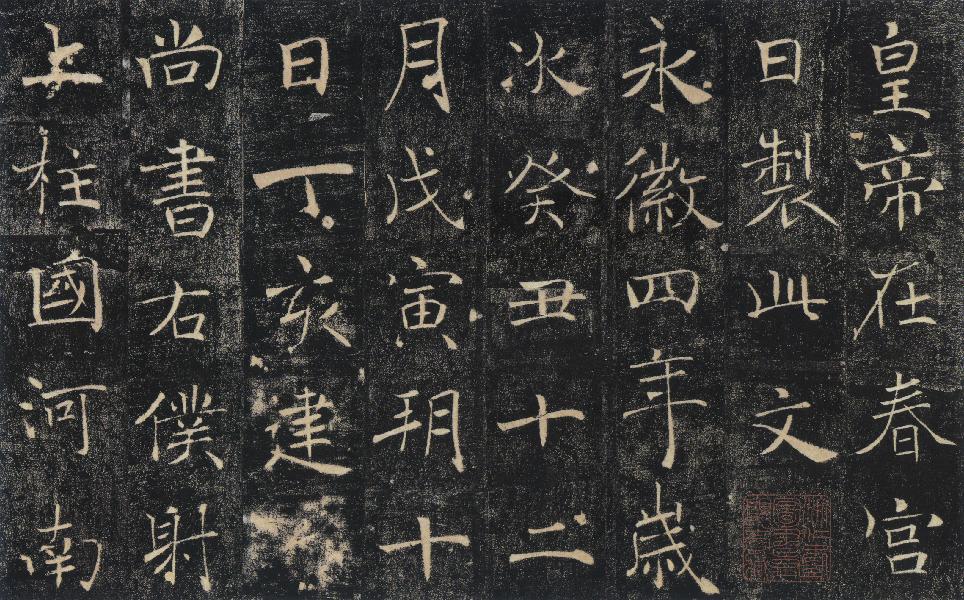 皇帝在春宮
日製此文
永徽四年歲
次癸丑十二
月戊寅朔十
日丁亥建
尚書右僕射
上柱國河南